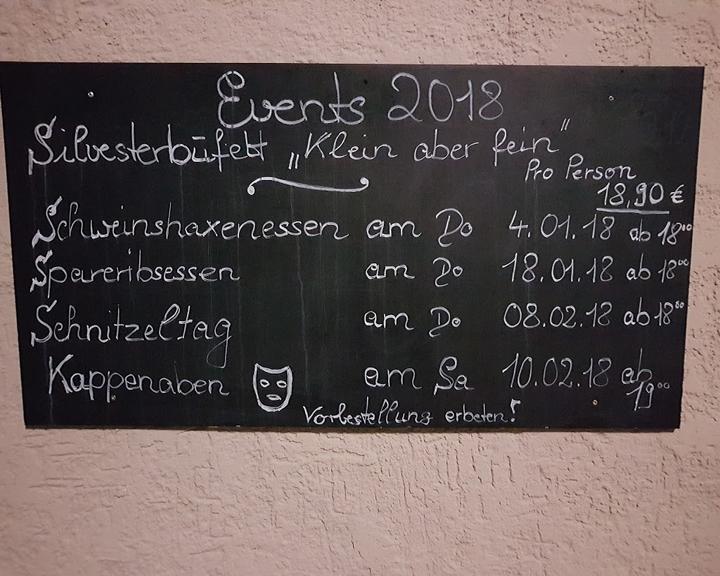 Events 2018
Silvesterbüfett „Klein aber fein“
Pro Person
18,90 €
Schweinshaxenessen am Do 4.01.18 ab 18⁰⁰
Spareribsessen am Do 18.01.18 ab 18⁰⁰
Schnitzeltag am Do 08.02.18 ab 18⁰⁰
Kappenaben am Sa 10.02.18 ab 19⁰⁰
Vorbestellung erbeten!